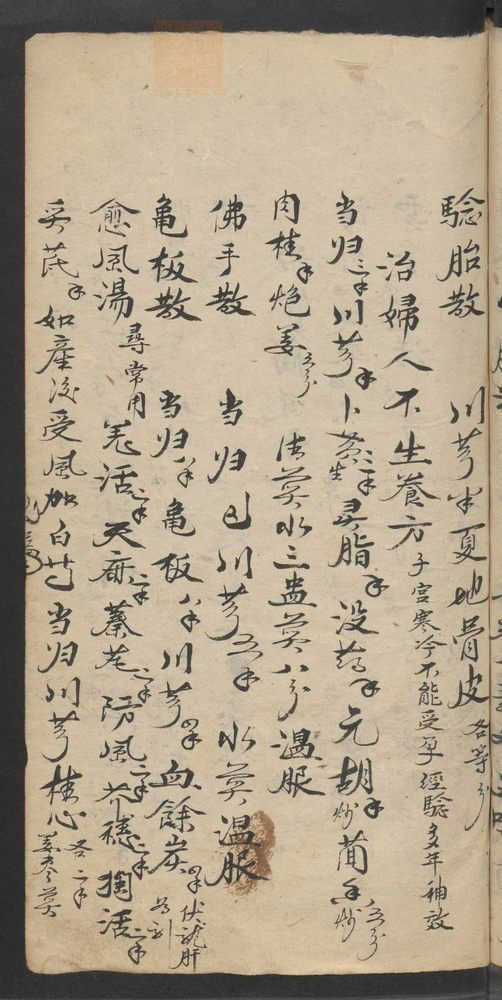 驗胎散 川芎半夏地骨皮各等分
治婦人不生養方子宮寒冷不能受孕經驗多年神效
当归二钱川芎钱卜黄生二钱灵脂钱没药钱元胡钱炒茴香五分炒
肉桂钱炮姜五分 法煎水三盅煎八分温服
佛手散 当归 川芎五钱 水煎温服
亀板散 当归八钱亀板八钱川芎四钱血餘炭四钱伏龍肝
愈風湯尋常用羌活二钱天麻二钱蔓荆防風二钱芥穗二钱獨活二钱
黄芪钱如産後受風加白芍当归川芎桂心各二钱姜枣煎